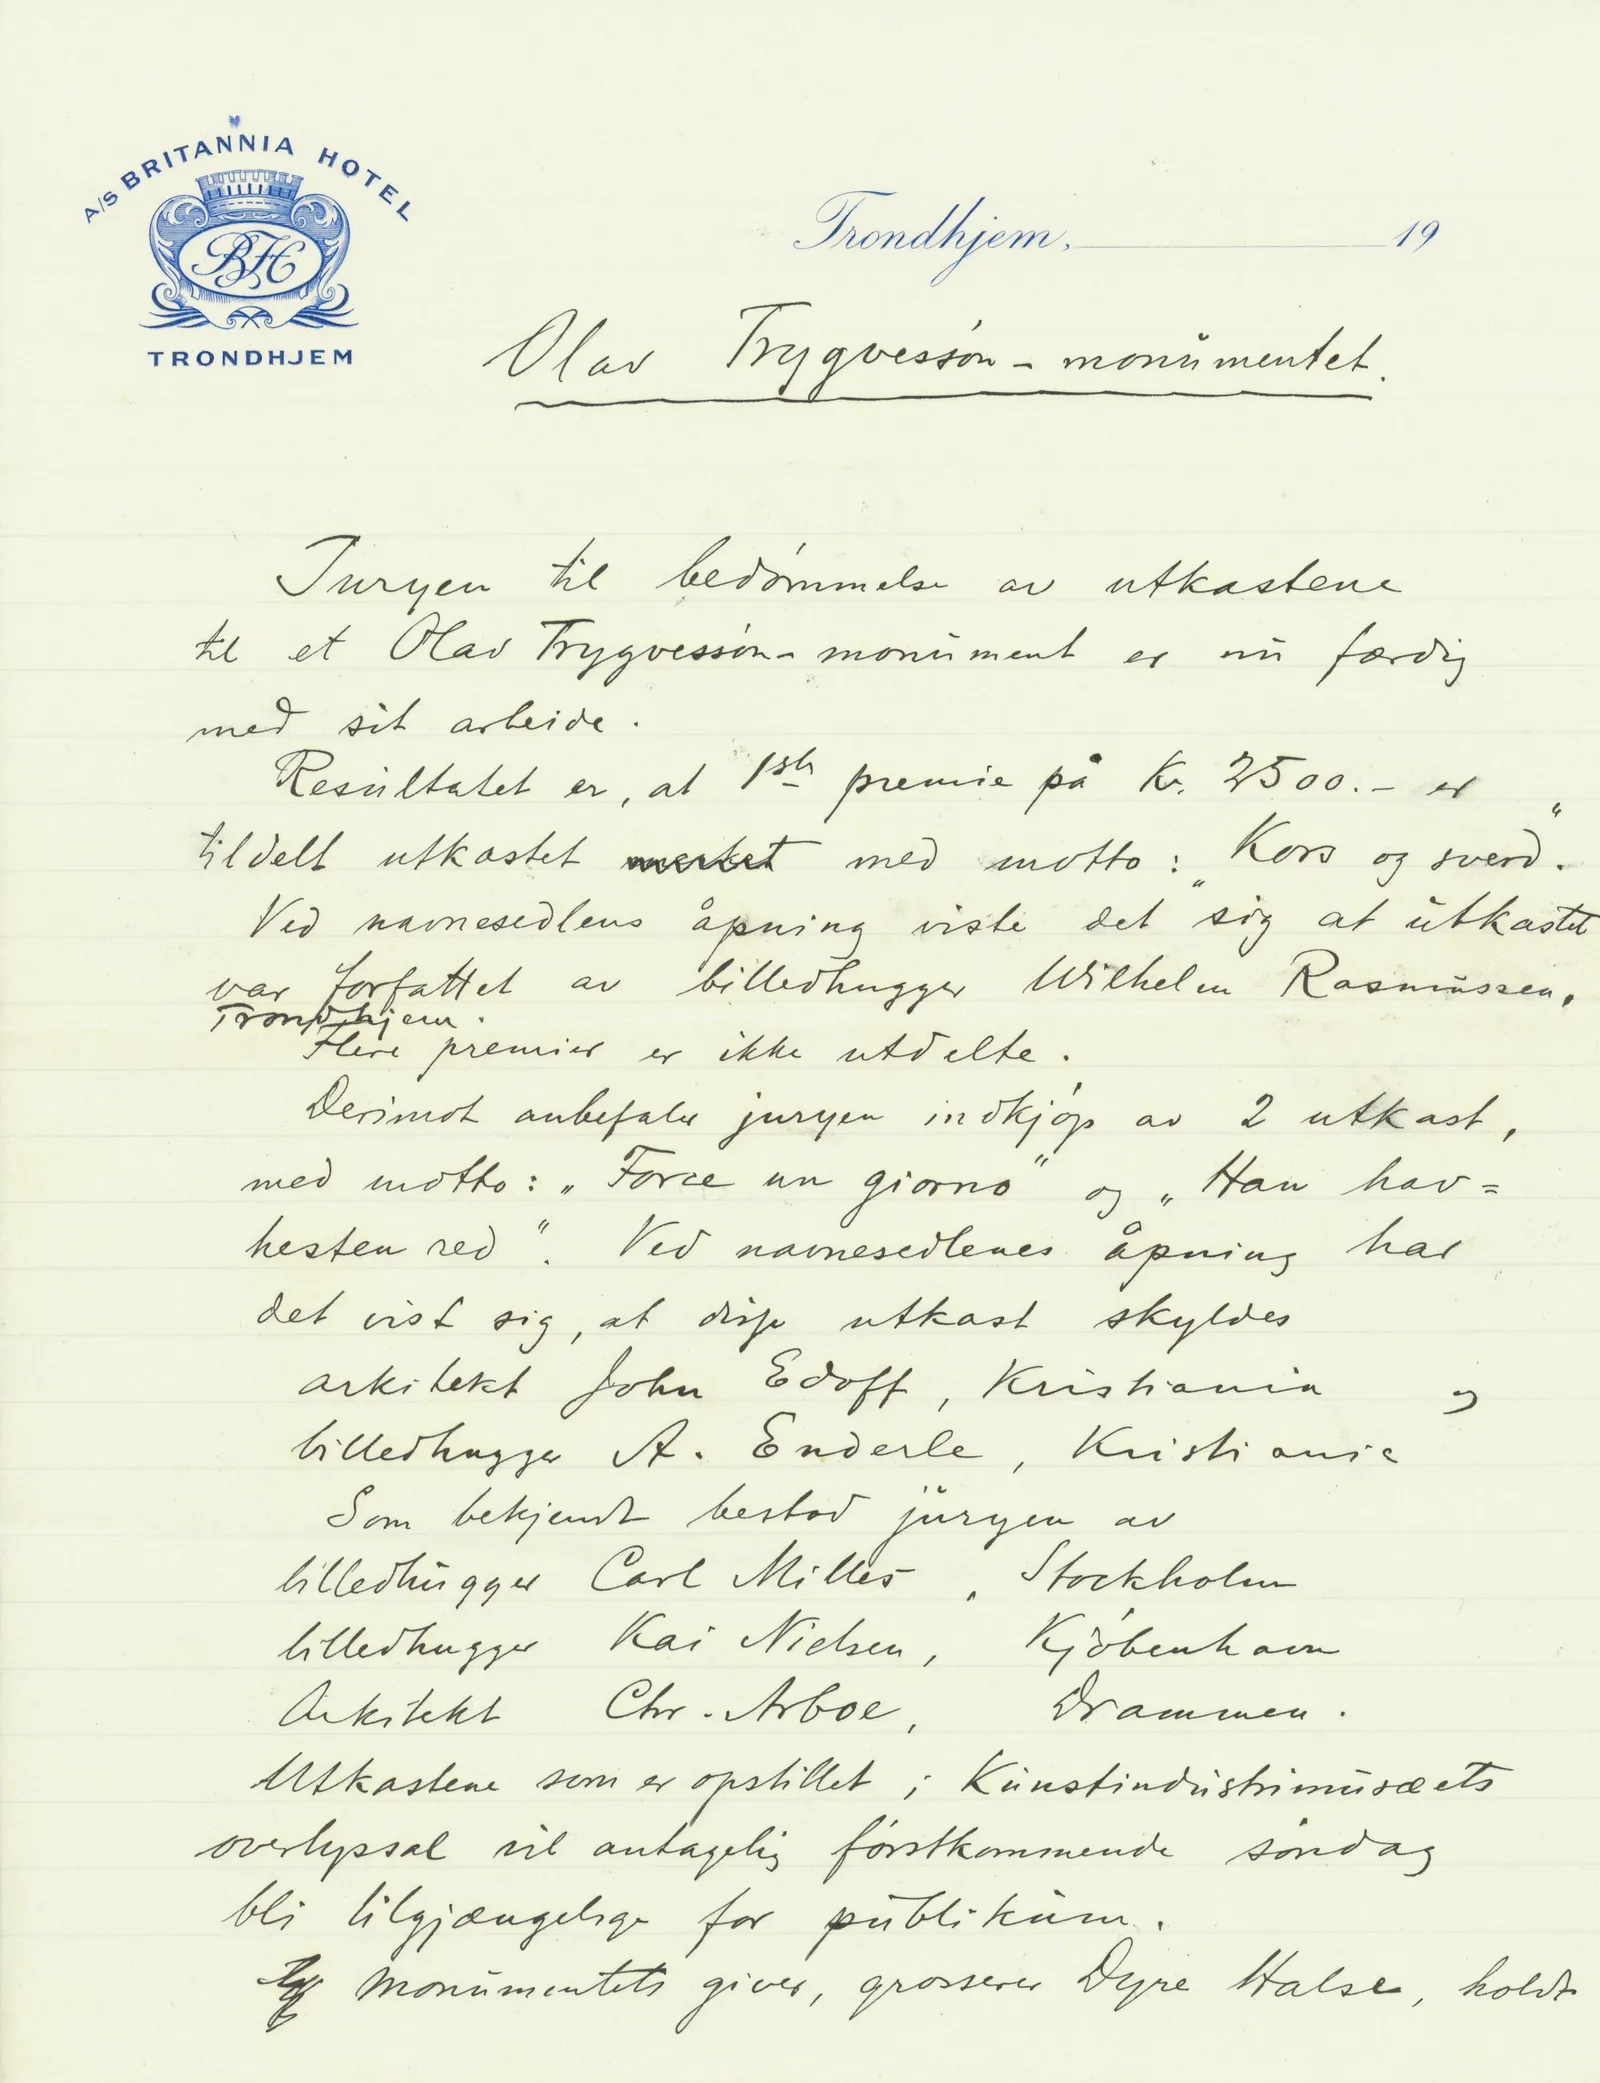 A/S BRITANNIA HOTEL
BH
TRONDHJEM
Trondhjem, 19
Olav Trygvessøn - monumentet.
Juryen til bedømmelse av utkastene
til et Olav Trygvessøn - monument er nu færdig
med sit arbeide.
Resultatet er, at 1ste premie på Kr. 2500.- er
tildelt utkastet med motto: "Kors og sverd".
Ved navnesedlens åpning viste det sig at utkastet
var forfattet av billedhugger Wilhelm Rasmussen,
Trondhjem.
Flere premier er ikke utdelte.
Derimot anbefaler juryen indkjøp av 2 utkast,
med motto: „Force un giorno" og „Han hav=
hesten red". Ved navnesedlenes åpning har
det vist sig, at disse utkast skyldes
arkitekt John Edoff, Kristiania og
billedhugger A. Enderle, Kristiania
Som bekjendt bestod juryen av
billedhugger Carl Milles, Stockholm
billedhugger Kai Nielsen, Kjøbenhavn
Arkitekt Chr. Arboe, Drammen.
Utkastene som er opstillet i Kunstindustrimusæets
overlyssal vil antagelig førstkommende søndag
bli tilgjængelige for publikum.
Monumentets giver, grosserer Dyre Halse, holdt